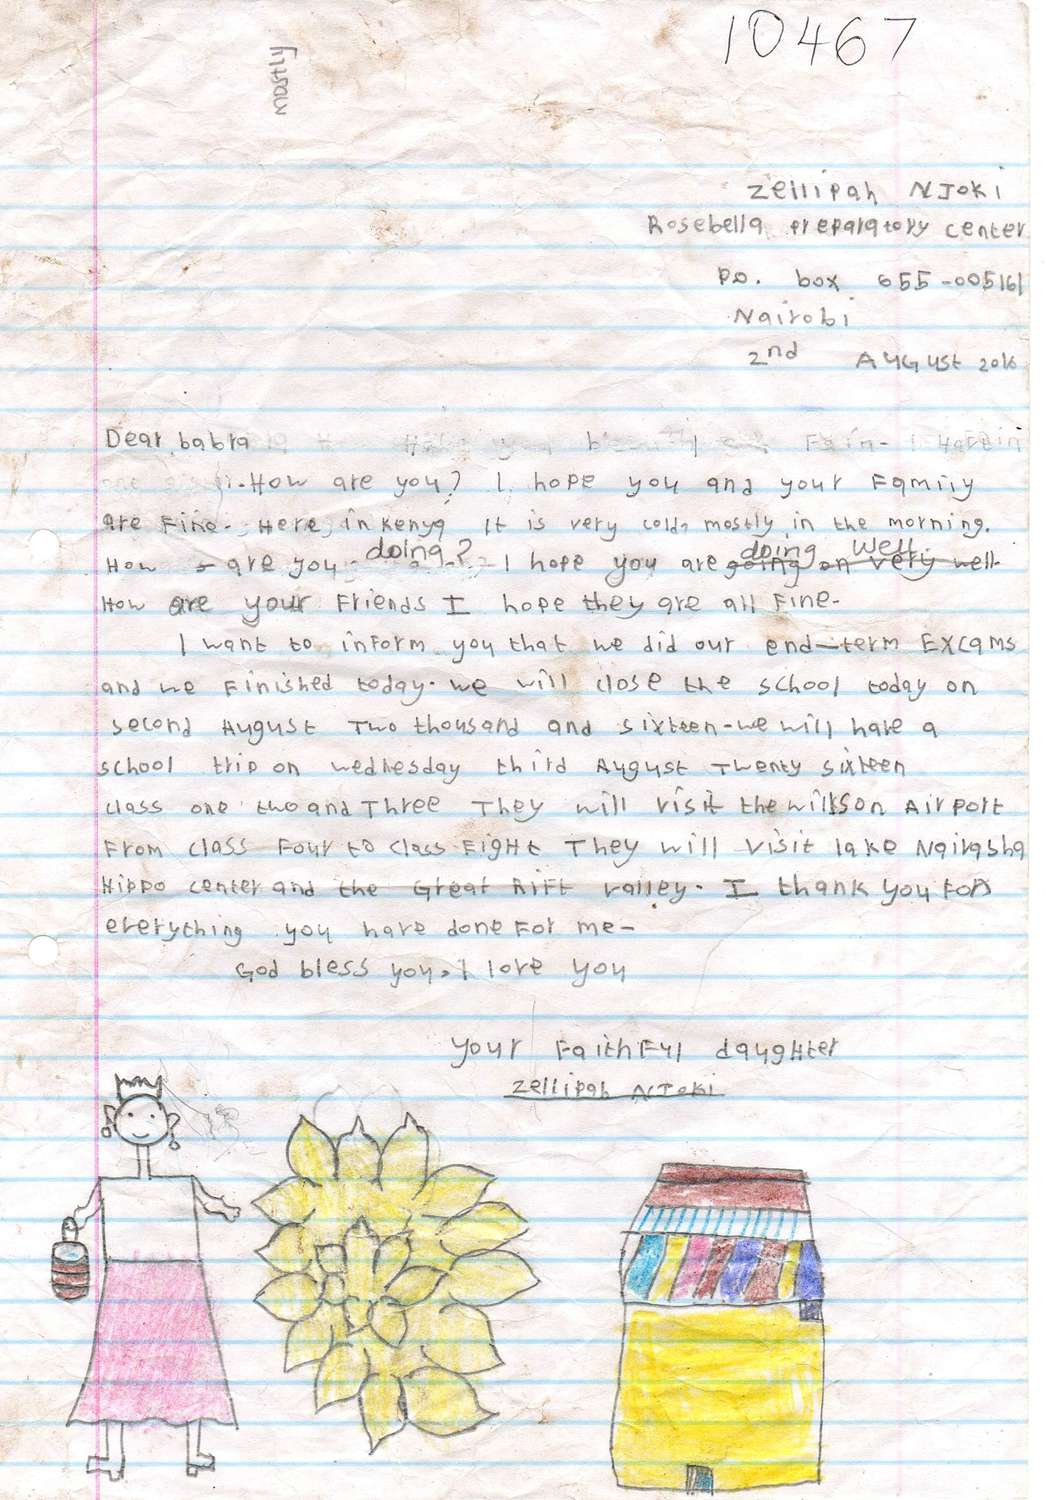 10467
mostly
Zellipah NJoki
Rosebella preparatory center
P.o. box 655-005161
Nairobi
2nd AUGUST 2016
Dear babra
How are you? I hope you and your Family
are Fine. Here in Kenya It is very cold, mostly in the morning.
How are you doing? I hope you are going on very well. doing well.
How are your Friends I hope they are all Fine-
I want to inform you that we did our end-term Excams
and we Finished today. we will close the school today on
second August Two thousand and sixteen-we will have a
school trip on wednesday third August Twenty sixteen
class one two and Three They will visit the willson Airport
From class Four to class Eight They will visit lake Naivasha
Hippo center and the Great Rift valley. I thank you For
everything you have done For me-
God bless you. I love you
your FaithFul daughter
Zellipah NJoki